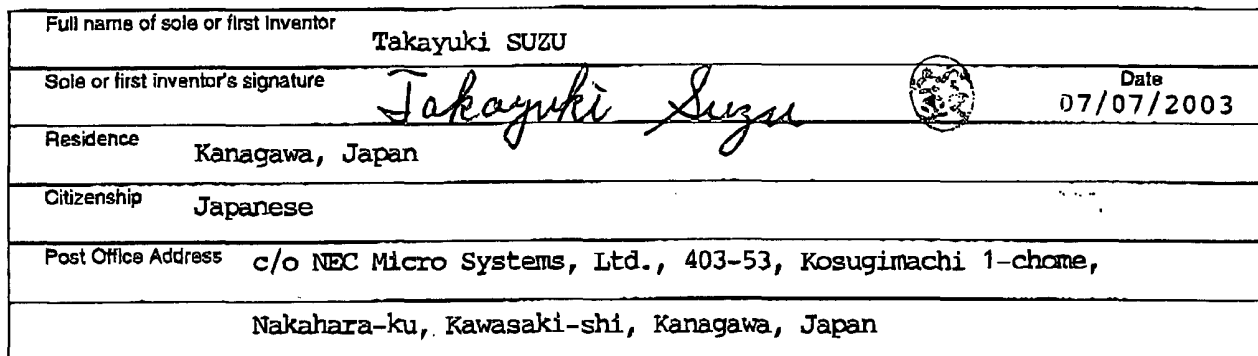 Full name of sole or first inventor
Takayuki SUZU
Sole or first inventor's signature Takayuki Suzu Date
07/07/2003
Residence Kanagawa, Japan
Citizenship Japanese
Post Office Address c/o NEC Micro Systems, Ltd., 403-53, Kosugimachi 1-chome,
Nakahara-ku, Kawasaki-shi, Kanagawa, Japan